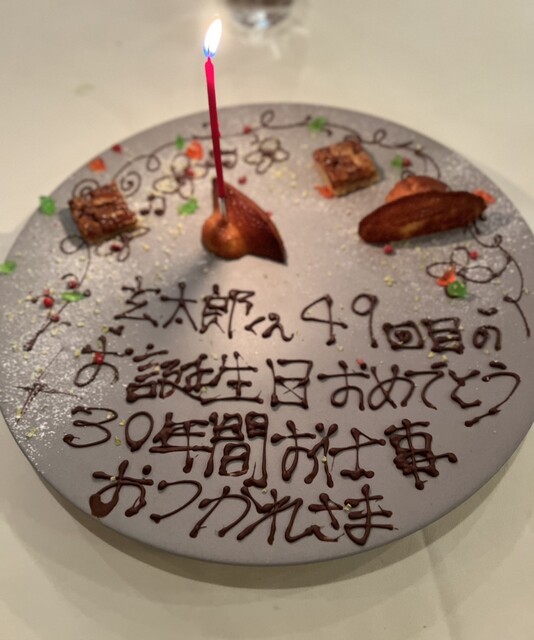 玄太郎くん49回目の
お誕生日おめでとう
30年間お仕事
おつかれさま